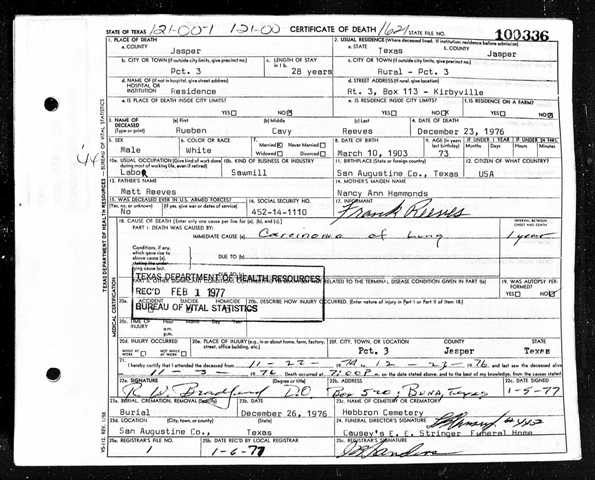 STATE OF TEXAS 121-00-1 121-00 CERTIFICATE OF DEATH 1621 STATE FILE NO. 100336
1. PLACE OF DEATH 2. USUAL RESIDENCE (Where deceased lived. If institution: residence before admission)
a. COUNTY Jasper a. STATE Texas b. COUNTY Jasper
b. CITY OR TOWN (If outside city limits, give precinct no.) c. LENGTH OF STAY c. CITY OR TOWN (If outside city limits, give precinct no.)
Pct. 3 28 years Rural - Pct. 3
d. NAME OF (If not in hospital, give street address) d. STREET ADDRESS (If rural, give location)
HOSPITAL OR INSTITUTION Residence Rt. 3, Box 113 - Kirbyville
e. IS PLACE OF DEATH INSIDE CITY LIMITS? e. IS RESIDENCE INSIDE CITY LIMITS? f. IS RESIDENCE ON A FARM?
YES NO YES NO YES NO
3. NAME OF DECEASED (Type or print) (a) First (b) Middle (c) Last 4. DATE OF DEATH
Rueben Cavy Reeves December 23, 1976
5. SEX 6. COLOR OR RACE 7. Married Never Married Widowed Divorced 8. DATE OF BIRTH 9. AGE (In years last birthday) IF UNDER 1 YEAR IF UNDER 24 HRS.
Male White March 10, 1903 73 Months Days Hours Min.
'44
10a. USUAL OCCUPATION (Give kind of work done during most of working life, even if retired) 10b. KIND OF BUSINESS OR INDUSTRY 11. BIRTHPLACE (State or foreign country) 12. CITIZEN OF WHAT COUNTRY?
Labor Sawmill San Augustine Co., Texas USA
13. FATHER'S NAME 14. MOTHER'S MAIDEN NAME
Matt Reeves Nancy Ann Hammonds
15. WAS DECEASED EVER IN U.S. ARMED FORCES? 16. SOCIAL SECURITY NO. 17. INFORMANT
(Yes, no, or unknown) (If yes, give war or dates of service)
No 452-14-1110 Frank Reeves
18. CAUSE OF DEATH (Enter only one cause per line for (a), (b), and (c).) INTERVAL BETWEEN ONSET AND DEATH
PART I. DEATH WAS CAUSED BY:
IMMEDIATE CAUSE (a) Carcinoma of Lung 1 year
Conditions, if any, which gave rise to above cause (a), DUE TO (b)
TEXAS DEPARTMENT OF HEALTH RESOURCES
REC'D FEB 1 1977
BUREAU OF VITAL STATISTICS
NOT RELATED TO THE TERMINAL DISEASE CONDITION GIVEN IN PART I(a) 19. WAS AUTOPSY PERFORMED?
YES NO
20a. ACCIDENT SUICIDE HOMICIDE 20b. DESCRIBE HOW INJURY OCCURRED. (Enter nature of injury in Part I or Part II of item 18.)
20c. TIME OF INJURY Hour Month Day Year a.m. p.m.
20d. INJURY OCCURRED 20e. PLACE OF INJURY (e.g., in or about home, farm, factory, street, office building, etc.) 20f. CITY, TOWN, OR PRECINCT NO. COUNTY STATE
Pct. 3 Jasper Texas
21. I hereby certify that I attended the deceased from to 12-23-76 and last saw the deceased alive
on 1976. Death occurred at 7:00P m. on the date stated above; and to the best of my knowledge, from the causes stated.
22a. SIGNATURE (Degree or title) 22b. ADDRESS 22c. DATE SIGNED
D.O. Box 520, Buna, Texas 1-5-77
23a. BURIAL, CREMATION, REMOVAL 23b. DATE 23c. NAME OF CEMETERY OR CREMATORY
Burial December 26, 1976 Hebbron Cemetery
23d. LOCATION (City, town, or county) (State) 24. FUNERAL DIRECTOR'S SIGNATURE
San Augustine Co., Texas Causey's E. E. Stringer Funeral Home
25a. REGISTRAR'S FILE NO. 25b. DATE REC'D BY LOCAL REGISTRAR 25c. REGISTRAR'S SIGNATURE
1 1-6-77
TEXAS DEPARTMENT OF HEALTH RESOURCES — BUREAU OF VITAL STATISTICS
MEDICAL CERTIFICATION